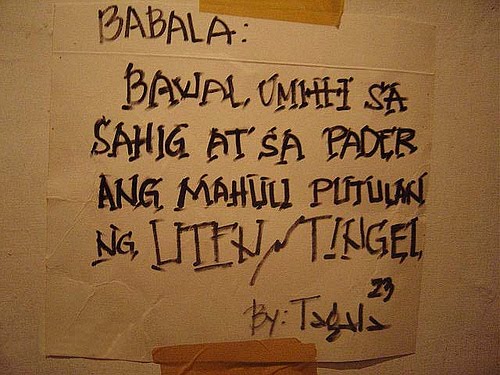 BABALA:
BAWAL UMIHI SA
SAHIG AT SA PADER
ANG MAHULI PUTULAN
NG UTEN/TINGEL
23
By: Tagala